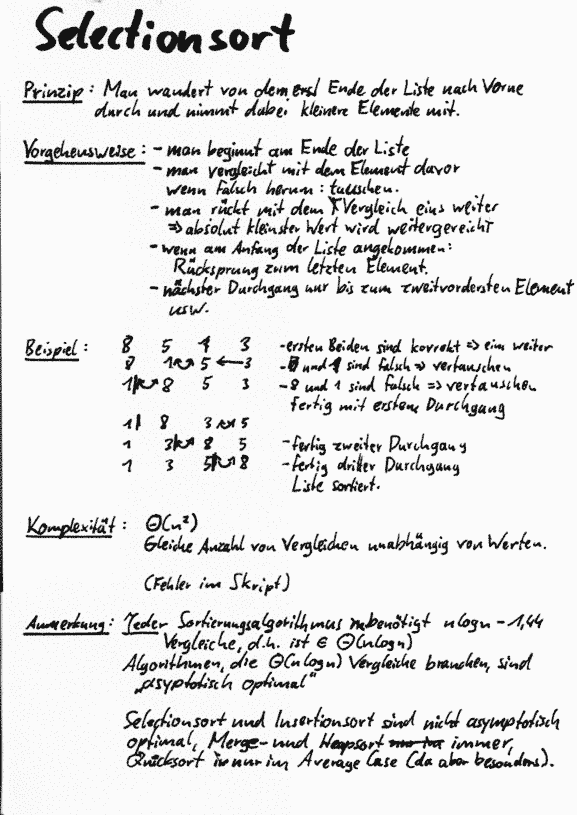 Selectionsort
Prinzip: Man wandert von dem Ende der Liste nach Vorne
durch und nimmt dabei kleinere Elemente mit.
Vorgehensweise: - man beginnt am Ende der Liste
- man vergleicht mit dem Element davor
wenn falsch herum: tauschen.
- man rückt mit dem Vergleich eins weiter
=> absolut kleinster Wert wird weitergereicht
- wenn am Anfang der Liste angekommen:
Rücksprung zum letzten Element.
- nächster Durchgang nur bis zum zweitvordersten Element
usw.
Beispiel: 8 5 1 3 - ersten Beiden sind korrekt => eins weiter
8 1 5 3 - 5 und 1 sind falsch => vertauschen
1 8 5 3 - 8 und 1 sind falsch => vertauschen
fertig mit erstem Durchgang
1 8 3 5
1 3 8 5 - fertig zweiter Durchgang
1 3 5 8 - fertig dritter Durchgang
Liste sortiert.
Komplexität: Θ(n²)
Gleiche Anzahl von Vergleichen unabhängig von Werten.
(Fehler im Skript)
Anmerkung: Jeder Sortierungsalgorithmus benötigt n log n - 1,44
Vergleiche, d.h. ist ∈ Θ(n log n)
Algorithmen, die Θ(n log n) Vergleiche brauchen, sind
„asyptotisch optimal“
Selectionsort und Insertionsort sind nicht asymptotisch
optimal, Merge- und Heapsort immer,
Quicksort nur im Average Case (da aber besonders).